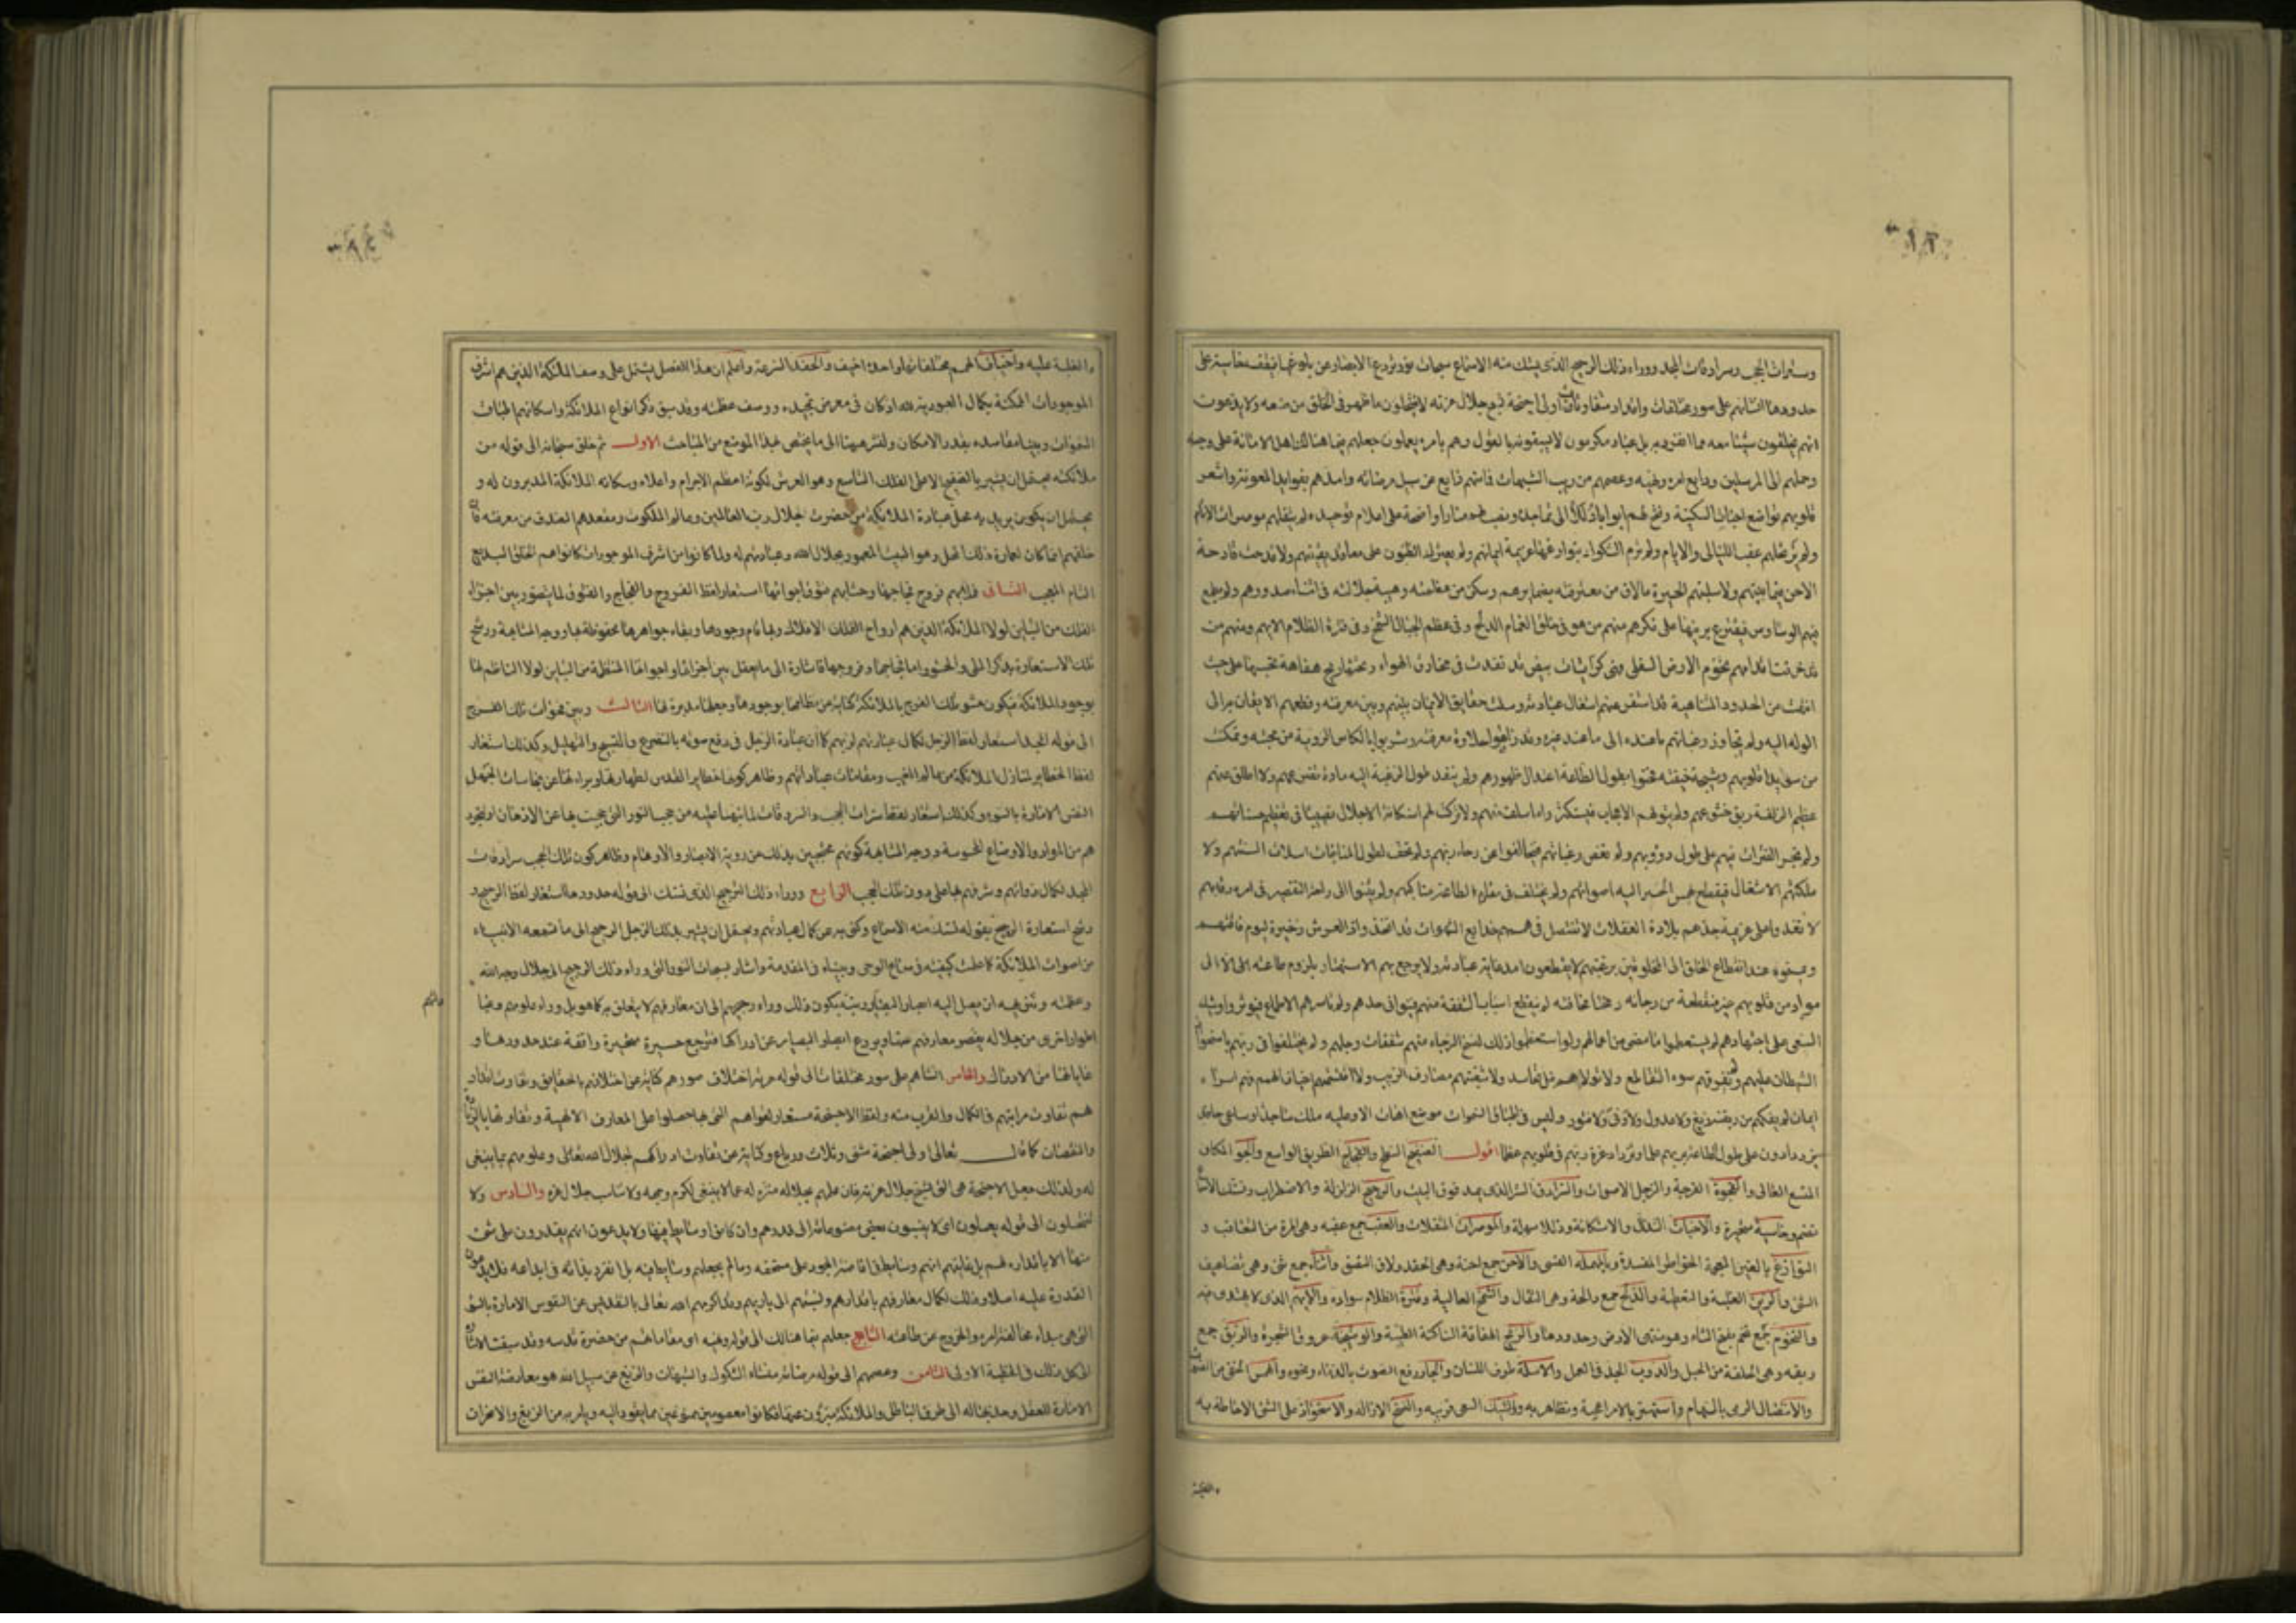 وسترات الحجب وسرادقات المجد ووراء ذلك الرجيج الذى تستك منه الاسماع سبحات نور تردع الابصار عن بلوغها فتقف خاسئة على
حدودها انشاهم على صور مختلفات واقدار متفاوتات اولى اجنحة تسبح جلال عزته لا ينتحلون ما ظهر فى الخلق من صنعه ولا يدعون
انهم يخلقون شيئا معه مما انفرد به بل عباد مكرمون لا يسبقونه بالقول وهم بامره يعملون جعلهم فيما هنالك اهل الامانة على وحيه
وحملهم الى المرسلين ودايع امره ونهيه وعصمهم من ريب الشبهات فما منهم زايغ عن سبيل مرضاته وامدهم بفوايد المعونة واشعر
قلوبهم تواضع اخبات السكينة وفتح لهم ابوابا ذللا الى تماجيده ونصب لهم منارا واضحة على اعلام توحيده لم يثقلهم موصرات الاثام
ولم ترتحلهم عقب الليالى والايام ولم ترم الشكوك بنوازغها عزيمة ايمانهم ولم تعترك الظنون على معاقد يقينهم ولا قدحت قادحة
الاحن فيما بينهم ولا سلبتهم الحيرة ما لاق من معرفته بضمايرهم وسكن من عظمته وهيبة جلالته فى اثناء صدورهم ولم تطمع
فيهم الوساوس فتقترع برينها على فكرهم منهم من هو فى خلق الغمام الدلح وفى عظم الجبال الشمخ وفى قترة الظلام الايهم ومنهم من
قد خرقت اقدامهم تخوم الارض السفلى فهى كرايات بيض قد نفذت فى مخارق الهواء وتحتها ريح هفافة تحبسها على حيث
انتهت من الحدود المتناهية قد استفرغتهم اشغال عبادته ووسلت حقايق الايمان بينهم وبين معرفته وقطعهم الايقان به الى
الوله اليه ولم تجاوز رغباتهم ما عنده الى ما عند غيره وقد ذاقوا حلاوة معرفته وشربوا بالكاس الروية من محبته وتمكنت
من سويداء قلوبهم وشيجة خيفته فحنوا بطول الطاعة اعتدال ظهورهم ولم ينفد طول الرغبة اليه مادة تضرعهم ولا اطلق عنهم
عظيم الزلفة ربق خشوعهم ولم يتولهم الاعجاب فيستكثروا ما سلف منهم ولا تركت لهم استكانة الاجلال نصيبا فى تعظيم حسناتهم
ولم تجر الفترات فيهم على طول دؤوبهم ولم تغض رغباتهم فيخالفوا عن رجاء ربهم ولم تجف لطول المناجات اسلات السنتهم ولا
ملكتهم الاشغال فتنقطع بهمس الخير اليه اصواتهم ولم يختلف فى مقاوم الطاعة مناكبهم ولم يثنوا الى راحة التقصير فى امره رقابهم
لا تعدوا على عزيمة جدهم بلادة الغفلات لا تنتضل فى هممهم خدايع الشهوات قد اتخذوا ذا العرش ذخيرة ليوم فاقتهم
ويمموه عند انقطاع الخلق الى المخلوقين برغبتهم لا يقطعون امد غاية عبادته ولا يرجع بهم الاستهتار بلزوم طاعته الا الى
مواد من قلوبهم غير منقطعة من رجائه ومخافته لم تنقطع اسباب الشفقة منهم فينوا فى جدهم ولم تاسرهم الاطماع فيؤثروا وشيك
السعى على اجتهادهم لم يستعظموا ما مضى من اعمالهم ولو استعظموا ذلك لنسخ الرجاء منهم شفقات وجلهم ولم يختلفوا فى ربهم باستحواذ
الشيطان عليهم ولم يفرقهم سوء التقاطع ولا تولاهم غل التحاسد ولا تشعبتهم مصارف الريب ولا اقتسمتهم اخياف الهمم فهم اسراء
ايمان لم يفكهم من ربقته زيغ ولا عدول ولا ونى ولا فتور وليس فى اطباق السموات موضع اهاب الا وعليه ملك ساجد او ساع حافد
يزدادون على طول الطاعة بربهم علما وتزداد عزة ربهم فى قلوبهم عظما اقول الصفيح السطح والفجاج الطريق الواسع والجو المكان
المتسع العالى والفجوة الفرجة والزجل الاصوات والسرادق الستر الذى يمد فوق البيت والرجيج الزلزلة والاضطراب وتستك الاذان
تصم وخاسئة متحيرة والاخبات التذلل والاستكانة وذللا سهلة والموصرات المثقلات والعقب جمع عقبه وهى المرة من التعاقب و
النوازغ بالغين المعجمة الخواطر المفسدة وبالمهملة القسى والاحن جمع احنة وهى الحقد ولاق التصق واثناء جمع ثنى وهى تضاعيف
الشئ والرين الغلبة والتغطية والدلح جمع دالحة وهى الثقال والشمخ العالية وقترة الظلام سواده والايهم الذى لا يهتدى فيه
والتخوم جمع تخم بفتح التاء وهو منتهى الارض وحدودها والريح الهفافة الساكنة الطيبة والوشيجة عروق الشجرة والربق جمع
ربقه وهى الحلقة من الحبل والدؤوب الجد فى العمل والاسلة طرف اللسان والجار رفع الصوت بالدعاء ونحوه والهمس الخفى من الصوت
والانتضال الرمى بالسهام واستهتر بالامر اعجب به وتظاهر به والوشيك السعى قريبه والنسخ الازالة والاستحواذ على الشئ الاحاطة به
والغلبة
والغلبة عليه واخياف الهمم مختلفاتها واحدها اخيف والحفد السرعة واعلم ان هذا الفصل يشتمل على وصف الملائكة الذين هم اشرف
الموجودات الممكنة بكمال العبودية لله اذ كان فى معرض تمجيده ووصف عظمته وقد سبق ذكر انواع الملائكة واسكانهم اطباق
السموات وبينا مقاصده بقدر الامكان ولنشر هيهنا الى ما يختص بهذا الموضع من المباحث الاول ثم خلق سبحانه الى قوله من
ملائكته يحتمل ان يشير بالصفيح الاعلى الفلك التاسع وهو العرش لكونه اعظم الاجرام واعلاه وسكانه الملائكة المدبرون له و
يحتمل ان يكون يريد به محل عبادة الملائكة من حضرت جلال رب العالمين وعالم الملكوت ومقعدهم الصدق من معرفته فان
خلقهم انما كان لعمارة ذلك المحل وهو البيت المعمور بجلال الله وعبادتهم له ولما كانوا من اشرف الموجودات كانوا هم الخلق البديع
التام المعجب الثانى ملأ بهم فروج فجاجها وحشا بهم فتوق اجوائها استعار لفظ الفروج والفجاج والفتوق لما يتصور بين اجزاء
الفلك من التباين لولا الملائكة الذين هم ارواح الافلاك وبها قام وجودها وبقاء جواهرها محفوظة بها ووجه المشابهة ورشح
تلك الاستعارة بذكر الملى والحشو واما فجاجها وفروجها فاشارة الى ما يعقل بين اجزائها واجوائها المنتظمة من التباين لولا الناظم لها
بوجود الملائكة فيكون حشو تلك الفرج بالملائكة كناية عن نظامها بوجودها وجعلها مدبرة لها الثالث وبين فجوات تلك الفروج
الى قوله المجد استعار لفظ الزجل لكمال عبادتهم لربهم كما ان عبادة الزجل فى رفع صوته بالتضرع والتسبيح والتهليل وكذلك استعار
لفظ الحظاير لمنازل الملائكة من عالم الغيب ومقامات عباداتهم وظاهر كونها حظاير القدس لطهارتها وبراءتها عن نجاسات الجهل
النفس الامارة بالسوء وكذلك استعار لفظ سترات الحجب والسردقات لما نبهنا عليه من حجب النور التى حجبت بها عن الاذهان او تجرد
هم من المواد والاوضاع المحسوسة ووجه المشابهة كونهم محتجبين بذلك عن روية الابصار والاوهام وظاهر كون تلك الحجب سرادقات
المجد لكمال ذواتهم وشرفهم بها على من دون تلك الحجب الرابع ووراء ذلك الرجيج الذى تستك الى قوله حدودها استعار لفظ الرجيج و
رشح استعارة الرجيج بقوله تستك منه الاسماع وكنى به عن كمال عبادتهم ويحتمل ان يشير بذلك الزجل الرجيج الى ما تسمعه الانبياء
من اصوات الملائكة كما علمت كيفيته فى سماع الوحى وبيناه فى المقدمة واشار بسبحات النور التى وراء ذلك الرجيج الى جلال وجه الله
وعظمته وتنزيهه ان يصل اليه ابصار البصاير ونبه بكون ذلك وراء رجيجهم الى ان معارفهم لا يتعلق به كما هو بل وراء علومهم وعبا
داتهم
اطوار اخرى من جلاله يقصر معارفهم عنها ويردع ابصار البصاير عن ادراكها فترجع حسيرة متحيرة واقفة عند حدودها و
غاياتها من الادراك والخامس انشاهم على صور مختلفات الى قوله عزته اختلاف صورهم كناية عن اختلافهم بالحقايق وتفاوت اقدار
هم تفاوت مراتبهم فى الكمال والقرب منه ولفظ الاجنحة مستعار لقواهم التى بها حصلوا على المعارف الالهية وتفاوتها بالزيادة
والنقصان كما قال تعالى اولى اجنحة مثنى وثلاث ورباع وكناية عن تفاوت ادراكهم لجلال الله تعالى وعلومهم بما ينبغى
له ولذلك جعل الاجنحة هى التى تسبح جلال عزته فان علمهم بجلاله منزه له عما لا ينبغى لكرم وجهه ولا يناسب جلال عزه والسادس ولا
ينتحلون الى قوله يعملون اى لا ينسبون بعض مصنوعاته الى قدرهم وان كانوا وسائط فيها ولا يدعون انهم يقدرون على شئ
منها الا باقداره لهم بل غايتهم انهم وسائط فى افاضة الجود على مستحقه وما لم يجعلهم وسائط فيه بل انفرد بذاته فى ابداعه فلا يدعون
القدرة عليه اصلا وذلك لكمال معارفهم باقدارهم ونسبتهم الى باريهم وقد اكرمهم الله تعالى بالتقديس عن النفوس الامارة بالسوء
التى هى مبداء مخالفة امره والخروج عن طاعته السابع جعلهم فيما هنالك الى قوله ونهيه اى مقاماتهم من حضرة قدسه وقد سبقت الاشارة
الى كل ذلك فى الخطبة الاولى الثامن وعصمهم الى قوله مرضاته منشاء الشكوك والشبهات والزيغ عن سبيل الله هو معارضة النفس
الامارة للعقل وجذبها له الى طرق الباطل والملائكة مبرؤن عنها فكانوا معصومين ممنوعين مما يقود اليه ويامر به من الزيغ والانحراف